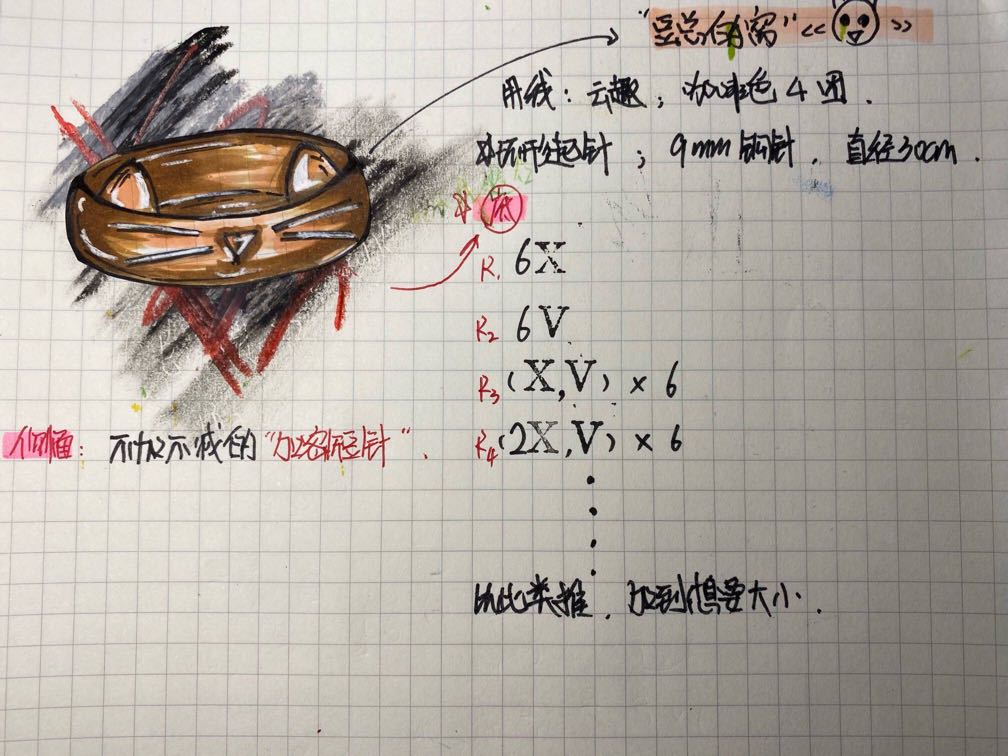 "豆总的窝"
用线：云趣；咖啡色4团.
环形起针；9mm钩针，直径30cm.
底
R1 6X
R2 6V
R3 (X,V) × 6
R4 (2X,V) × 6
以此类推，加到想要大小.
侧面：不加不减的"加密短针".